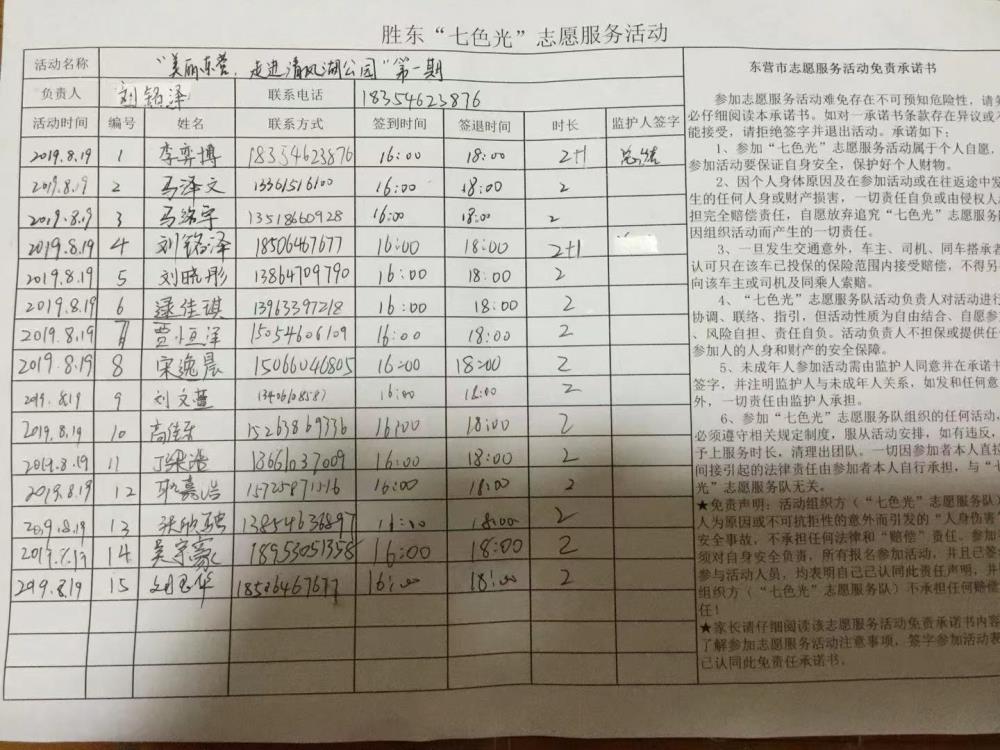 胜东“七色光”志愿服务活动
活动名称 “美丽东营,走进清风湖公园”第一期
负责人 刘铭泽 联系电话 18354623876
活动时间 编号 姓名 联系方式 签到时间 签退时间 时长 监护人签字
2019.8.19 1 李奕博 18354623876 16:00 18:00 2+1 总结
2019.8.19 2 马泽文 13361516100 16:00 18:00 2
2019.8.19 3 马铭宇 13518660928 16:00 18:00 2
2019.8.19 4 刘铭泽 18506467677 16:00 18:00 2+1
2019.8.19 5 刘晓彤 13864709790 16:00 18:00 2
2019.8.19 6 逯佳琪 13963397218 16:00 18:00 2
2019.8.19 7 贾恒泽 15054606109 16:00 18:00 2
2019.8.19 8 宋逸晨 15066046805 16:00 18:00 2
2019.8.19 9 刘文萱 16:00 18:00 2
2019.8.19 10 15263869336 16:00 18:00 2
2019.8.19 11 18661037009 16:00 18:00 2
2019.8.19 12 耿嘉浩 16:00 18:00 2
2019.8.19 13 13854636897 16:00 18:00 2
14 吴宇豪 18953051358 16:00 18:00 2
2019.8.19 15 18506467677 16:00 18:00 2
东营市志愿服务活动免责承诺书
参加志愿服务活动难免存在不可预知危险性,请务
必仔细阅读本承诺书。如对一承诺书条款存在异议或不
能接受,请拒绝签字并退出活动。承诺如下:
1、参加“七色光”志愿服务活动属于个人自愿,
参加活动要保证自身安全,保护好个人财物。
2、因个人身体原因及在参加活动或在往返途中发
生的任何人身或财产损害,一切责任自负或由侵权人
担完全赔偿责任,自愿放弃追究“七色光”志愿服务
因组织活动而产生的一切责任。
3、一旦发生交通意外,车主、司机、同车搭承者
认可只在该车已投保的保险范围内接受赔偿,不得另
向该车主或司机及同乘人索赔。
4、“七色光”志愿服务队活动负责人对活动进行
协调、联络、指引,但活动性质为自由结合、自愿参
、风险自担、责任自负。活动负责人不担保或提供任
参加人的人身和财产的安全保障。
5、未成年人参加活动需由监护人同意并在承诺书
签字,并注明监护人与未成年人关系,如发和任何意
外,一切责任由监护人承担。
6、参加“七色光”志愿服务队组织的任何活动,
必须遵守相关规定制度,服从活动安排,如有违反,
予上服务时长,清理出团队。一切因参加者本人直接
间接引起的法律责任由参加者本人自行承担,与“七
光”志愿服务队无关。
★免责声明:活动组织方(“七色光”志愿服务队)
人为原因或不可抗拒性的意外而引发的“人身伤害”
安全事故,不承担任何法律和“赔偿”责任。参加
须对自身安全负责,所有报名参加活动,并且已签
参与活动人员,均表明自己已认同此责任声明,并
组织方(“七色光”志愿服务队)不承担任何赔偿
任!
★家长请仔细阅读该志愿服务活动免责承诺书内容
了解参加志愿服务活动注意事项,签字参加活动表
己认同此免责任承诺书。